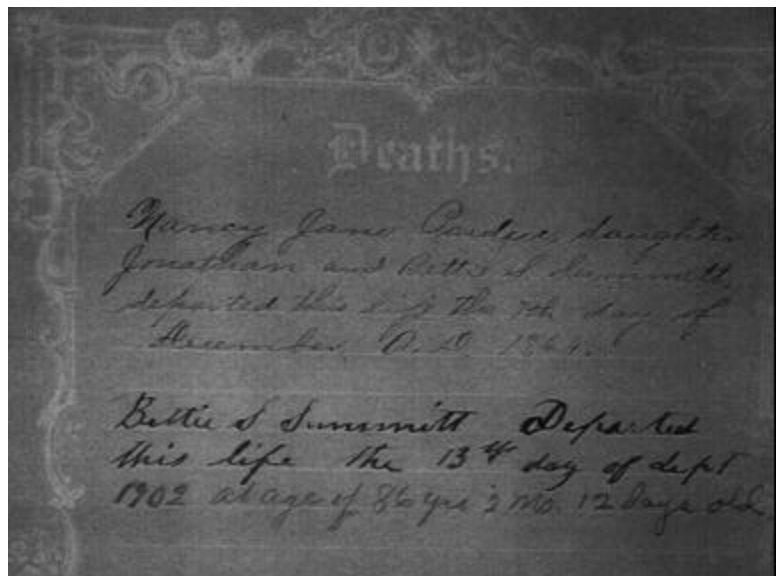 Deaths.
Nancy Jane daughter
Jonathan and Bettie S Summitt,
departed this life the 7th day of
December A.D. 1864.
Bettie S Summitt Departed
this life the 13th day of Sept
1902 at age of 86 yrs 2 Mo. 12 days old